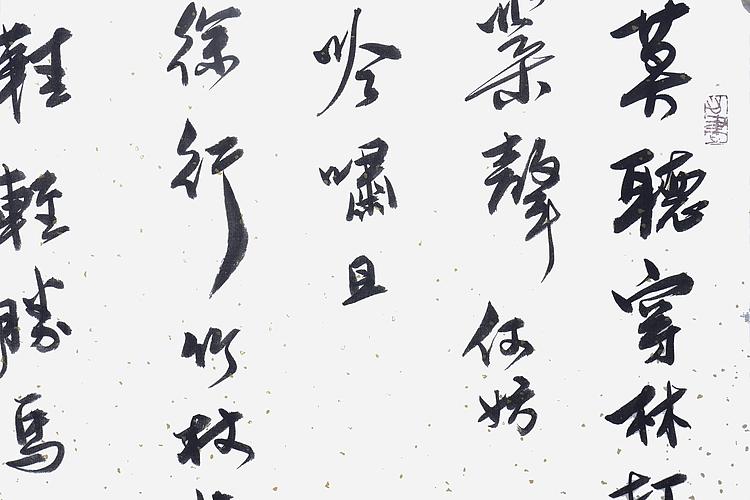 莫聽穿林打
葉聲何妨
吟嘯且
徐行竹杖
鞋輕勝馬